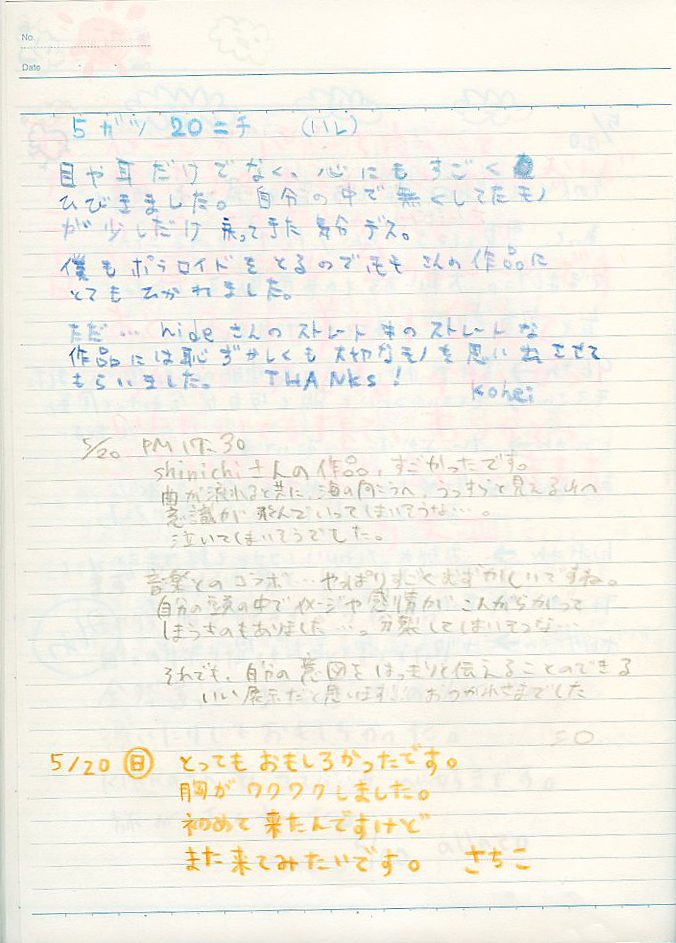 No.
Date
5ガツ 20ニチ (ハレ)
目や耳だけでなく、心にもすごく
ひびきました。自分の中で無くしてたモノ
が少しだけ戻って来た気分デス。
僕もポラロイドをとるのでモモさんの作品に
とてもひかれました。
ただ… hideさんのストレート中のストレートな
作品には恥ずかしくも大切なモノを思い出させて
もらいました。 THANKS!
Kohei
5/20 PM 17:30
shinichiさんの作品、すごかったです。
曲が流れると共に、海の向こうへ、うっすらと見える山へ
意識が飛んでいってしまいそうな…。
泣いてしまいそうでした。
音楽とのコラボ…やっぱりすごくむずかしいですね。
自分の頭の中でイメージや感情がこんがらがって
しまうものもありました…。分裂してしまいそうな…
それでも、自分の意図をはっきりと伝えることのできる
いい展示だと思います!! おつかれさまでした
5/20 日 とってもおもしろかったです。
胸がワクワクしました。
初めて来たんですけど
また来てみたいです。 さちこ